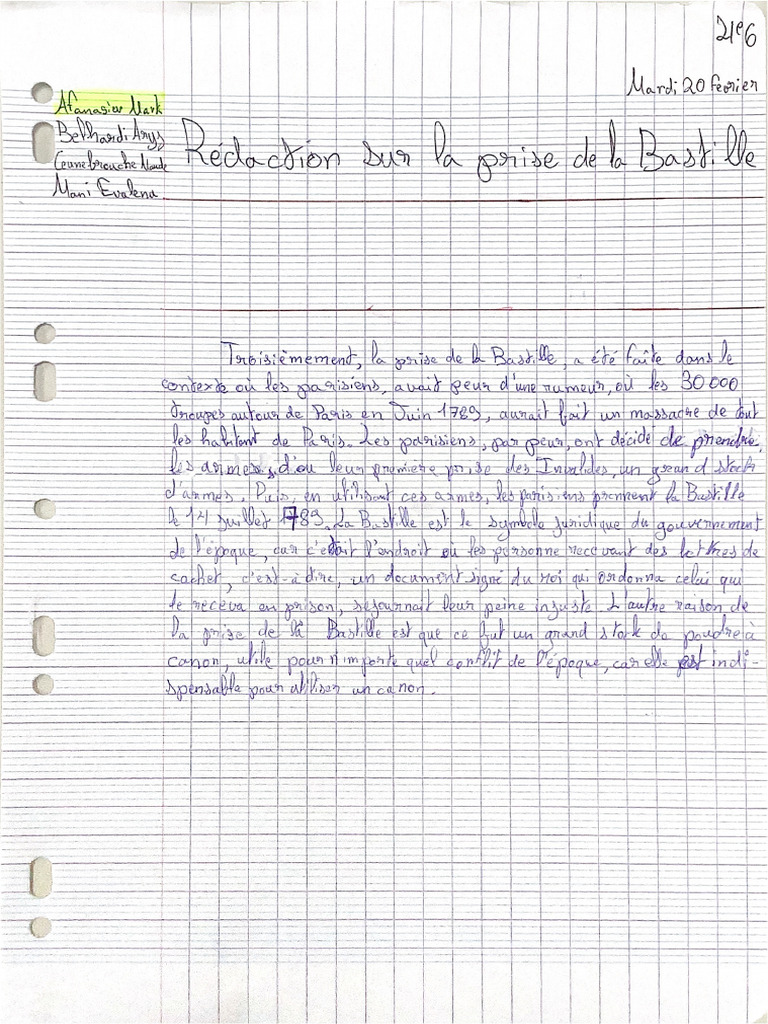 21e6
Mardi 20 fevrier
Afanasiev Mark
Belhardi Aryss
Mani Evalena
Rédaction sur la prise de la Bastille
Troisièmement, la prise de la Bastille, a été faîte dans le
contexte où les parisiens, avait peur d'une rumeur, où les 30 000
troupes autour de Paris en Juin 1789, aurait fait un massacre de tout
les habitant de Paris. Les parisiens, par peur, ont décidé de prendre
les armes, d'ou leur première prise des Invalides, un grand stock
d'armes. Puis, en utilisant ces armes, les parisiens prennent la Bastille
le 14 Juillet 1789. La Bastille est le symbole juridique du gouvernement
de l'époque, car c'était l'endroit où les personne recevant des lettres de
cachet, c'est-à-dire, un document signé du roi qui ordonna celui qui
le receva en prison, sejournait leur peine injuste. L'autre raison de
la prise de la Bastille est que ce fut un grand stock de poudre à
canon, utile pour n'importe quel conflit de l'époque, car elle est indi-
spensable pour utiliser un canon.